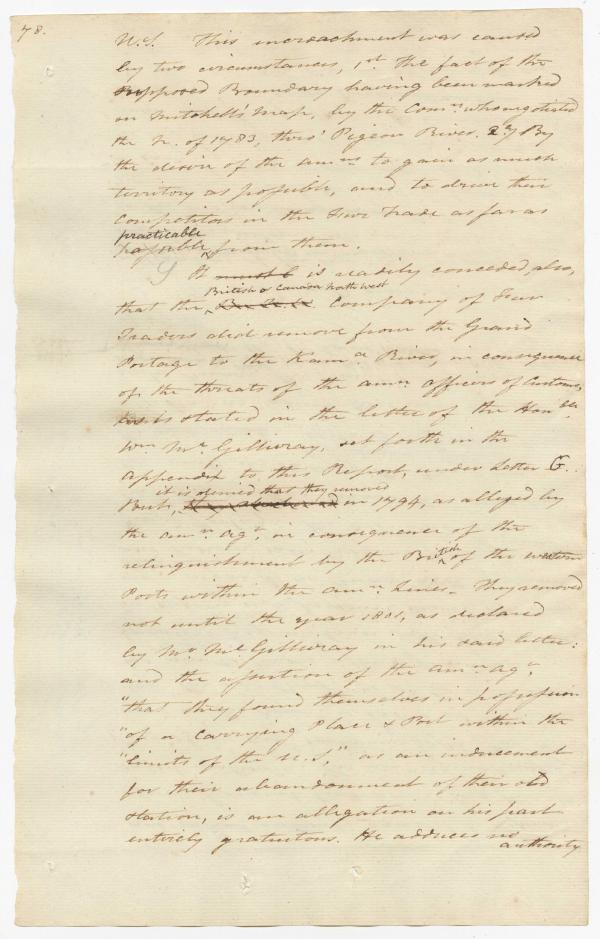 78.
U.S. This incroachment was caused
by two circumstances, 1st. the fact of the
supposed Boundary having been marked
on Mitchell's Map, by the Comrs. who negotiated
the Tr. of 1783, thro' Pigeon River. 2dy By
the desire of the Amns to gain as much
territory as possible, and to drive their
Competitors in the Fur Trade as far as
practicable
possible from them.
It must b is readily conceded, also,
British or Canada North West
that the Company of Fur
Traders did remove from the Grand
Portage to the Kama. River, in consequence
of the threats of the Amn. officers of Customs,
as is stated in the letter of the Honble.
Wm. Mc. Gillivray, set forth in the
Appendix to this Report, under Letter G.
it is denied that they removed
But, in 1794, as alleged by
the Amn. Agt. in consequence of the
relinquishment by the British of the western
Posts within the Amn. Lines. They removed
not until the year 1801, as declared
by Mr. Mc. Gillivray in his said letter:
and the assertion of the Amn. Agt.
"that they found themselves in possession
"of a Carrying Place & Post within the
"limits of the U.S.", as an inducement
for their abandonment of their old
station, is an allegation on his part
entirely gratuitous. He adduces no
authority